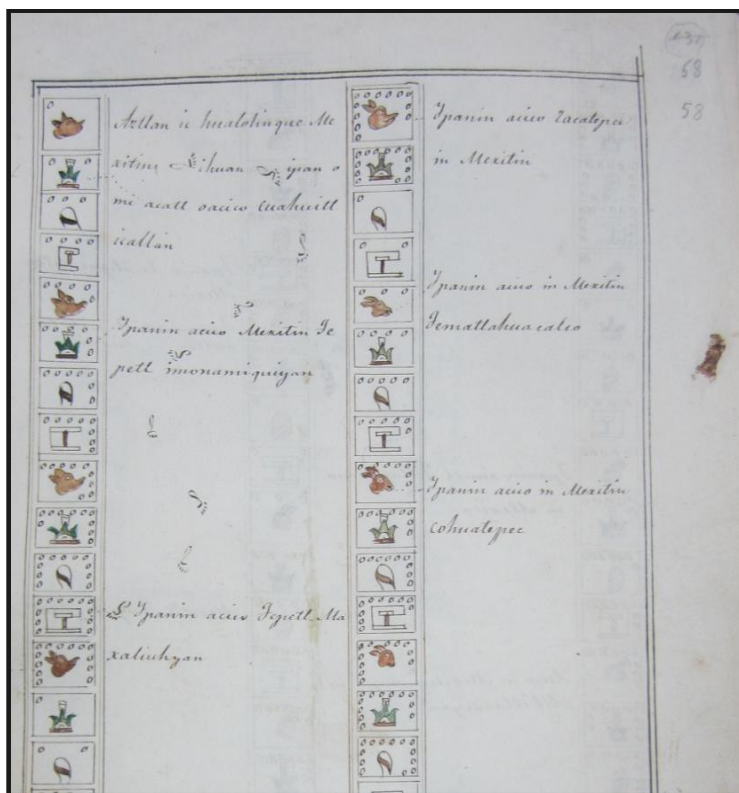 58
58
Aztlan ic hualolinque Me
xitin, Nihuan ipan o
mi acatl oacico Cuahuitl
icallan
Ypanin acico Mexitin Te
petl imonamiquiyan
Ypanin acico Tepetl Ma
xaliuhyan
Ypanin acico Zacatepec
in Mexitin
Ypanin acico in Mexitin
Tematlahuacalco
Ypanin acico in Mexitin
cohuatepec